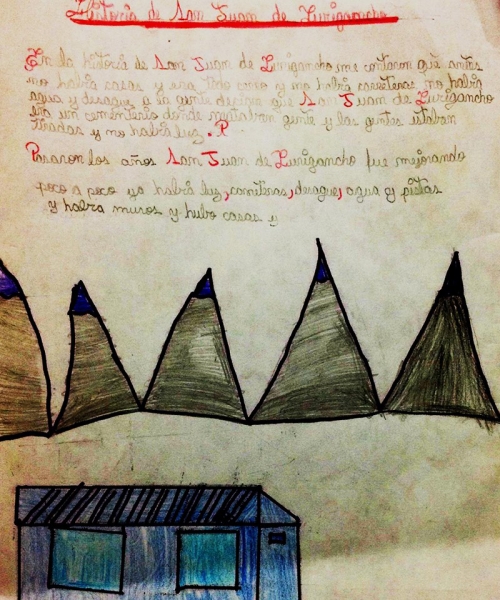 Historia de San Juan de Lurigancho
En la historia de San Juan de Lurigancho me contaron que antes
no habia casas y era todo cerro y no habia carreteras no habia
agua y desague a la gente decian que San Juan de Lurigancho
era un cementerio donde mataban gente y las gentes estaban
tiradas y no habia luz. P
Pasaron los años San Juan de Lurigancho fue mejorando
poco a poco ya habia luz, carreteras, desague, agua y pistas
y habia muros y hubo casas y